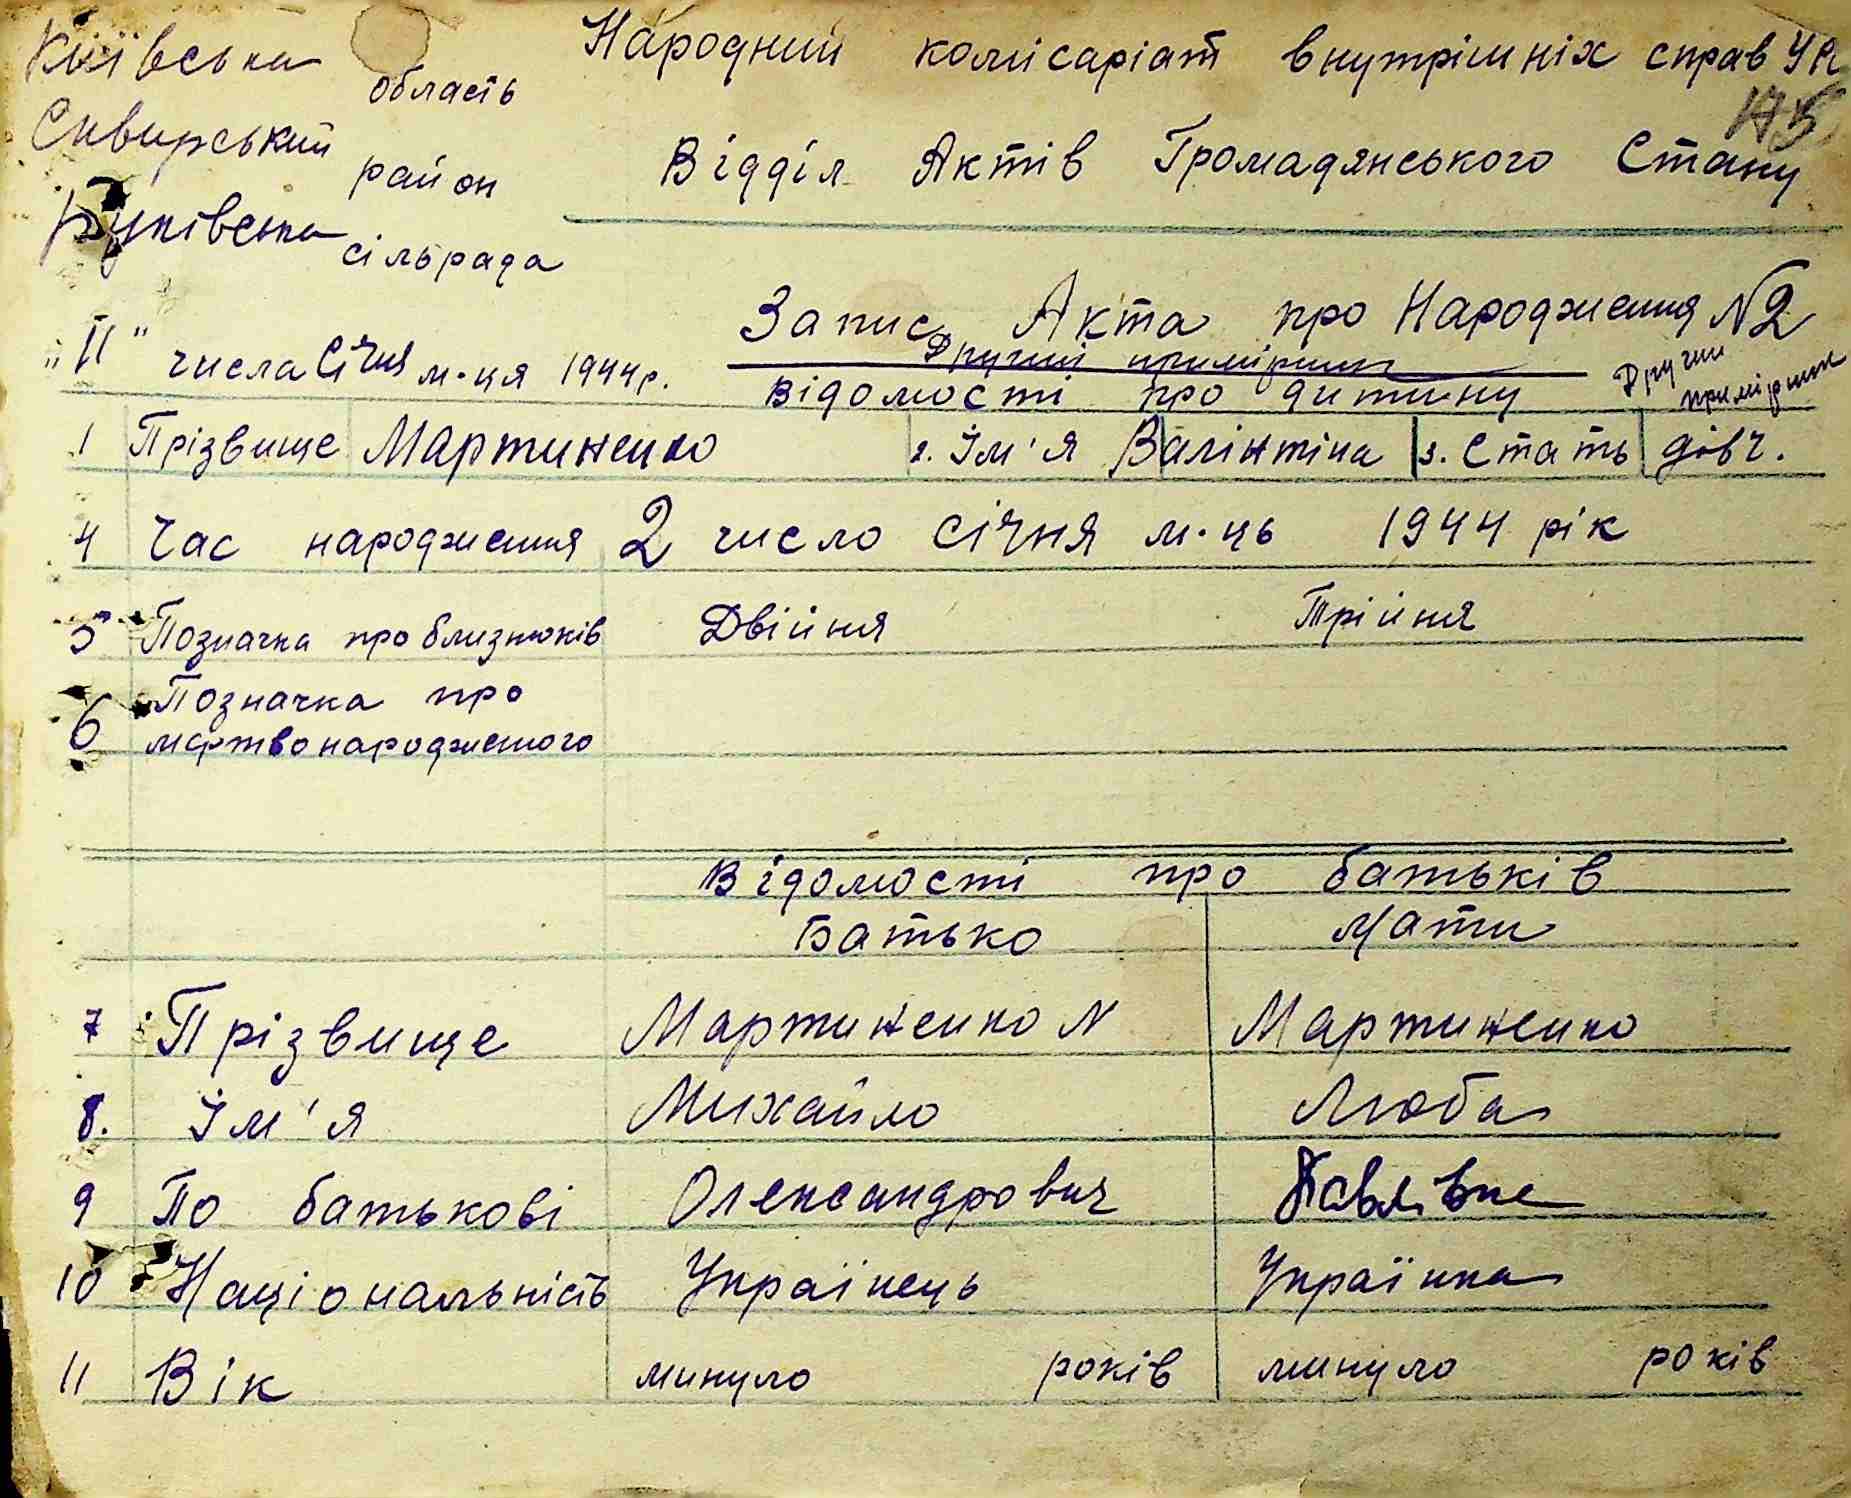 Київська область
Сквирський район
сільрада
Народний комісаріат внутрішніх справ УР
Відділ Актів Громадянського Стану
Запис Акта про Народження №2
Другий примірник
Другий примірник
"11" числа Січня м-ця 1944р.
Відомості про дитину
1 Прізвище Мартиненко 2. Їм'я Валінтіна 3. Стать дівч.
4 Час народження 2 число січня м-ць 1944 рік
5 Позначка про близнюків Двійня Трійня
6 Позначка про
мертвонародженого
Відомості про батьків
Батько Мати
7 Прізвище Мартиненко N Мартиненко
8. Їм'я Михайло Люба
9 По батькові Олександрович Павлівна
10 Національність Українець Українка
11 Вік минуло років минуло років